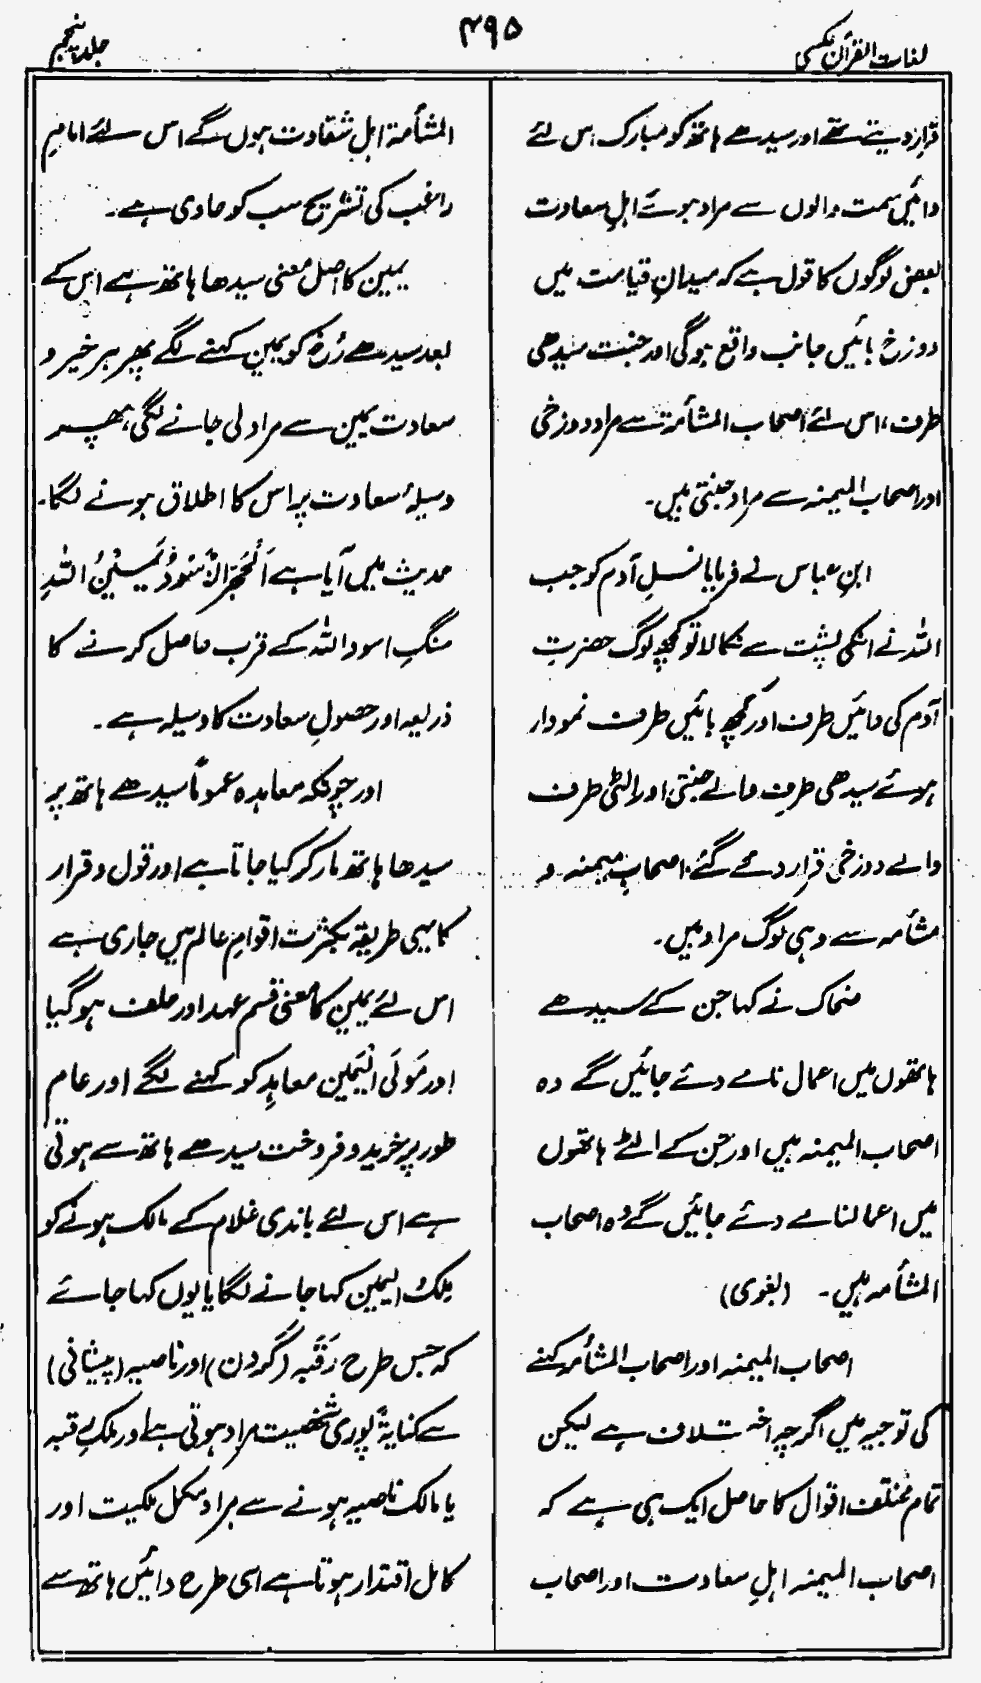 لغات القرآن عکسی
۴۹۵
جلد پنجم
قرار دیتے تھے اور سیدھے ہاتھ کو مبارک اس لئے
دائیں سمت والوں سے مراد ہوئے اہلِ سعادت
بعض لوگوں کا قول ہے کہ میدانِ قیامت میں
دوزخ بائیں جانب واقع ہوگی اور جنت سیدھی
طرف، اس لئے اصحاب المشأمۃ سے مراد دوزخی
اور اصحاب المیمنہ سے مراد جنتی ہیں۔
ابنِ عباس نے فرمایا نسلِ آدم کو جب
اللہ نے انکی پشت سے نکالا تو کچھ لوگ حضرت
آدم کی دائیں طرف اور کچھ بائیں طرف نمودار
ہوئے سیدھی طرف والے جنتی اور الٹی طرف
والے دوزخی قرار دئے گئے، اصحابِ میمنہ و
مشأمہ سے وہی لوگ مراد ہیں۔
ضحاک نے کہا جن کے سیدھے
ہاتھوں میں اعمال نامے دئے جائیں گے وہ
اصحاب المیمنہ ہیں اور جن کے الٹے ہاتھوں
میں اعمالنامے دئے جائیں گے وہ اصحاب
المشأمہ ہیں۔ (بغوی)
اصحاب المیمنہ اور اصحاب المشأمہ کہنے
کی توجیہ میں اگرچہ اختلاف ہے لیکن
تمام مختلف اقوال کا حاصل ایک ہی ہے کہ
اصحاب المیمنہ اہلِ سعادت اور اصحاب
المشأمۃ اہلِ شقاوت ہوں گے اس لئے امامِ
راغب کی تشریح سب کو حاوی ہے۔
یمین کا اصل معنی سیدھا ہاتھ ہے اس کے
بعد سیدھے رُخ کو یمین کہنے لگے پھر ہر خیر و
سعادت یمین سے مراد لی جانے لگی، پھر
وسیلۂ سعادت پر اس کا اطلاق ہونے لگا۔
حدیث میں آیا ہے اَلْحَجَرُ الْاَسْوَدُ یَمِیْنُ اللہِ
سنگِ اسود اللہ کے قرب حاصل کرنے کا
ذریعہ اور حصولِ سعادت کا وسیلہ ہے۔
اور چونکہ معاہدہ عموماً سیدھے ہاتھ پر
سیدھا ہاتھ مار کر کیا جاتا ہے اور قول و قرار
کا یہی طریقہ بکثرت اقوامِ عالم میں جاری ہے
اس لئے یمین کا معنی قسم عہد اور حلف ہو گیا
اور مَولَی الْیَمِین معاہد کو کہنے لگے اور عام
طور پر خرید و فروخت سیدھے ہاتھ سے ہوتی
ہے اس لئے باندی غلام کے مالک ہونے کو
مِلکُ الیمین کہا جانے لگا یا یوں کہا جائے
کہ جس طرح رَقَبہ (گردن) اور ناصیہ (پیشانی)
سے کنایۃً پوری شخصیت مراد ہوتی ہے اور ملکِ رقبہ
یا مالک ناصیہ ہونے سے مراد مکمل ملکیت اور
کامل اقتدار ہوتا ہے اسی طرح دائیں ہاتھ سے